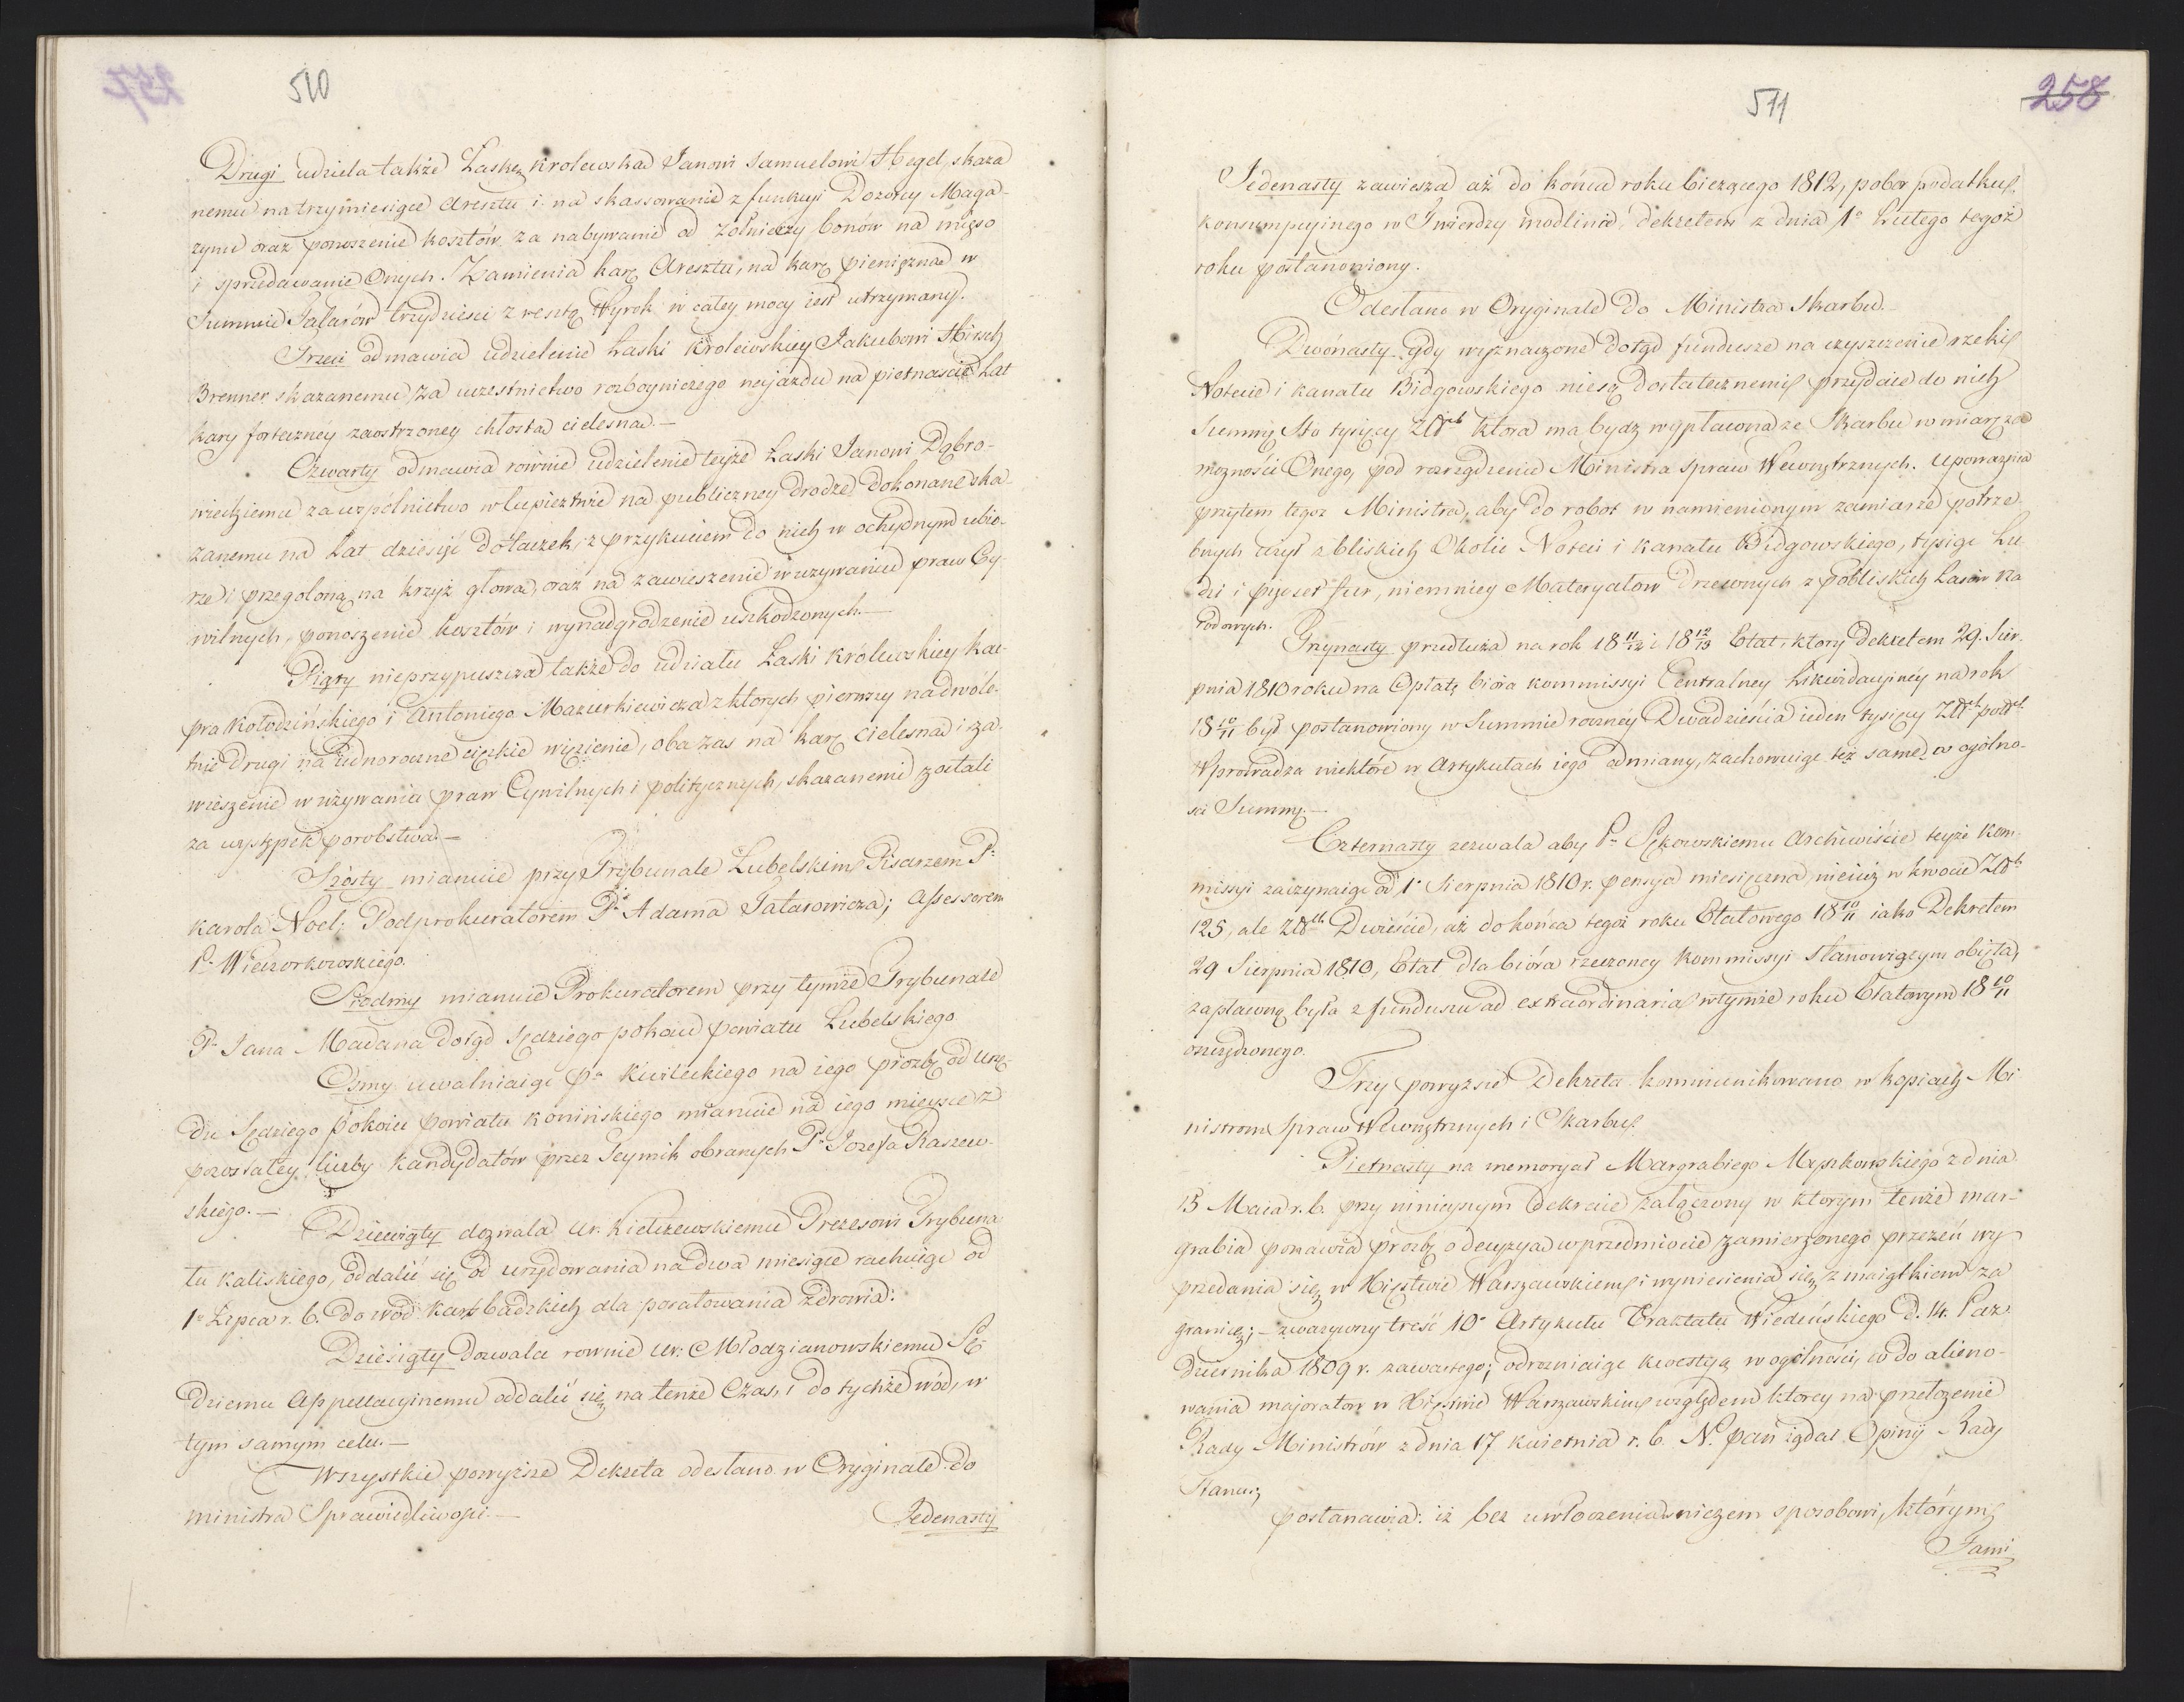 510
Drugi udziela także Łaskę Krolewska Janowi Samuelowi Hegel, skaza
nemu na trzy miesiące Aresztu i na skassowanie z funkcyi Dozorcy Maga-
zynu oraz ponoszenie kosztów za nabywanie od Żołnierzy bonów na mięso
i sprzedawanie Onych. Zamienia karę Aresztu, na karę pieniężna w
Summie Talarów trzydzieści z resztą Wyrok w całey mocy iest utrzymany.
Trzeci odmawia udzielenie Łaski Krolewskiey Jakubowi Hirsch
Brenner skazanemu za uczestnictwo rozboyniczego najazdu na pietnaście Lat
kary forteczney zaostrzoney chłosta cielesna. —
Czwarty odmawia rownie udzielenie teyże Łaski Janowi Dąbro-
wieckiemu za wspólnictwo w łupieztwie na publiczney drodze dokonane ska-
zanemu na Lat dziesięć do taczek, z przykuciem do nich w ochydnym ubio-
rze i przegoloną na krzyż głowa, oraz na zawieszenie w uzywaniu praw Cy-
wilnych, ponoszenie kosztów i wynadgrodzenie uszkodzonych. —
Piąty nieprzypuszcza także do udziału Łaski Królewskiey Kac-
pra Kołodzińskiego i Antoniego Mazurkiewicza z ktorych pierwszy na dwóle-
tnie drugi na iednoroczne ciężkie więzienie, oba zas na karę cielesna i za-
wieszenie w używania praw Cywilnych i politycznych, skazanemi zostali
za występek porobstwa. —
Szósty mianuie przy Trybunale Lubelskim Pisarzem Pa
Karola Noel; Podprokuratorem Pa Adama Tatarowicza; Assessorem
Pa Wieczorkowskiego.
Siodmy mianuie Prokuratorem przy tymże Trybunale
Pa Jana Madana dotąd Sędziego pokoiu powiatu Lubelskiego
Osmy uwalniaiąc Pa Kwileckiego na iego prozbę od urzę-
du Sędziego Pokoiu Powiatu Konińskiego mianuie na iego mieysce z
pozostałey liczby Kandydatów przez Seymik obranych Pa Jozefa Raszew-
skiego. —
Dziewiąty dozwala Ur. Kiełczewskiemu Prezesowi Trybuna
łu Kaliskiego, oddalić się od urzędowania na dwa miesiące rachuiąc od
1o Lipca r. b. do wód Karlsbadzkich dla poratowania zdrowia.
Dziesiąty Dozwala rownie Ur: Młodzianowskiemu Sę-
dziemu Appellacyinemu oddalić się na tenże Czas, i do tychże wód, w
tym samym celu. —
Wszystkie powyższe Dekreta odesłano w Oryginale do
ministra Sprawiedliwości. —
Jedenasty
511
258
Jedenasty zawiesza aż do końca roku bieżącego 1812, pobor podatku
konsumpcyinego w Twierdzy Modlinie, dekretem z dnia 1o Lutego tegoż
roku postanowiony.
Odesłano w Oryginale do Ministra Skarbu. —
Dwónasty gdy wyznaczone dotąd fundusze na czyszczenie rzeki
Noteci i kanału Bidgowskiego niesą dostatecznemi przydaie do nich
Summę Sto tysięcy Złtch która ma bydz wypłacona ze Skarbu w miarę za
mozności Onego, pod rozrządzenie Ministra Spraw Wewnętrznych. Upoważnia
przytem tegoz Ministra, aby do robot w namienionym zamiarze potrze-
bnych użył z bliskich Okolic Noteci i kanału Bidgowskiego, tysiąc Lu
dzi i pięcset fur, niemniey Materyałow drzewnych z pobliskich Lasów Na
rodowych.
Trzynasty przedłuża na rok 18 11/12 i 18 12/13 Etat, który dekretem 29. Sier-
pnia 1810 roku na Opłatę bióra Kommissyi Centralney Likwidacyiney na rok
18 10/11 był postanowiony w Summie roczney Dwadzieścia ieden tysięcy Złtch polsch
Wprowadza niektóre w Artykułach iego odmiany, zachowuiąc też same w ogólno-
sci Summę. —
Czternasty zezwala aby Pu Sękowskiemu Archiwiście teyże Kom-
missyi zaczynaiąc od 1o Sierpnia 1810 r. pensya miesięczna nieiuż w kwocie Złtch
125, ale Złtch Dwieście, aż do końca tegoż roku Etatowego 18 10/11 iako Dekretem
29 Sierpnia 1810, Etat dla bióra rzeczoney Kommissyi stanowiącym obięta,
zapłaconą była z funduszu ad extraordinaria w tymże roku Etatowym 18 10/11
oszczędzonego.
Trzy powyższe Dekreta kommunikowano w kopiach Mi
nistrom Spraw Wewnętrznych i Skarbu
Pietnasty na memoryał Margrabiego Myszkowskiego z dnia
15 Maia r. b. przy ninieyszym dekrecie załączony w ktorym tenże mar-
grabia ponawia prozbę o decyzya w przedmiocie zamierzonego przezeń wy
przedania się w Xięstwie Warszawskiem i wyniesienia się z maiątkiem za
granicę; — zwazywszy treść 10o Artykułu Traktatu Wiedeńskiego d. 14. Paz-
dziernika 1809 r. zawartego; odrozniaiąc kwestyą w ogólności, co do alieno-
wania majoratow w Xięstwie Warszawskim względem ktorey na przełożenie
Rady Ministrów z dnia 17 kwietnia r. b. N. Pan ządał Opinii Rady
Stanu;
postanawia: iż bez uwłoczenia w niczem sposobowi, którym
Fami